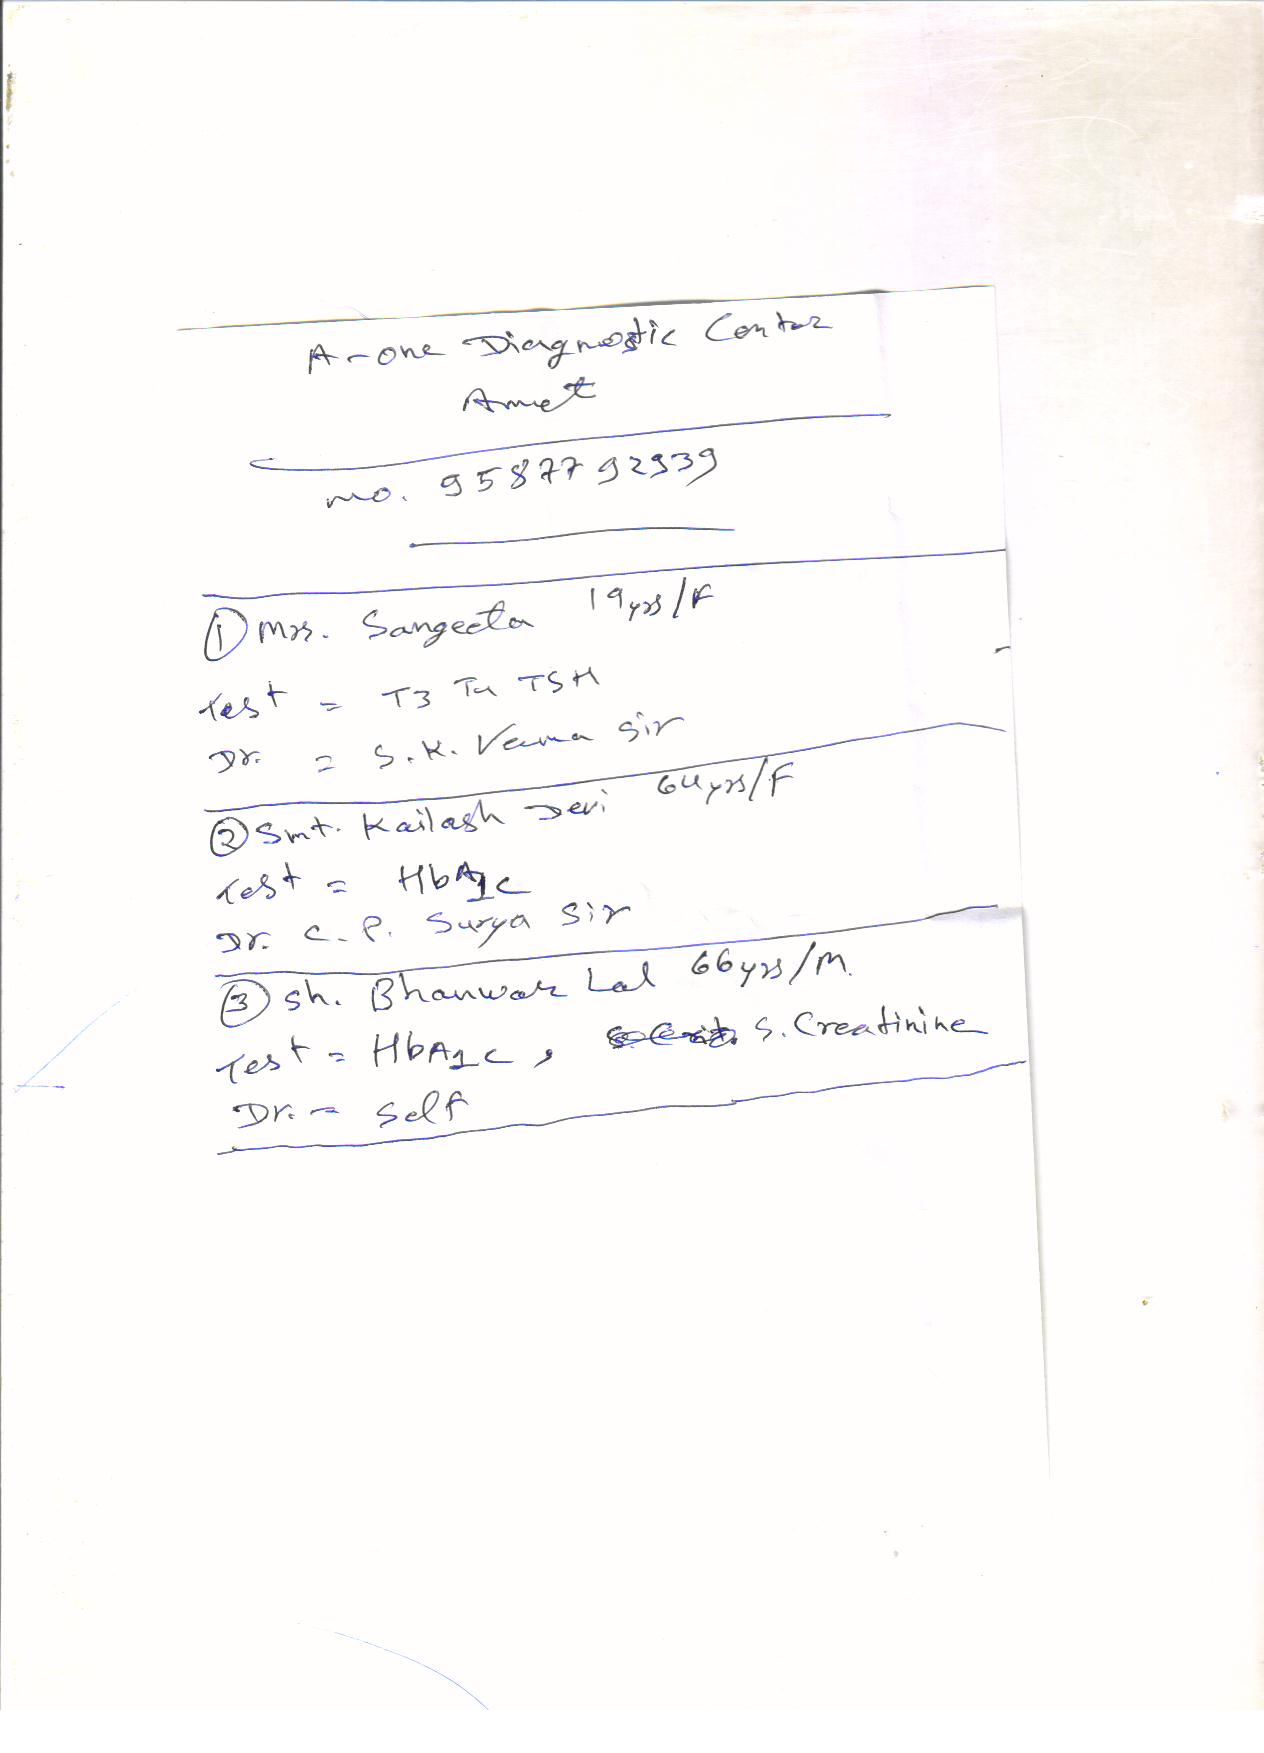 A-one Diagnostic Centar
Amet
mo. 9587792939
① Mrs. Sangeeta 19yrs/F
Test = T3 T4 TSH
Dr. = S.K. Verma Sir
② Smt. Kailash Devi 64yrs/F
Test = HbA1C
Dr. C.P. Surya Sir
③ Sh. Bhanwar Lal 66yrs/M.
Test = HbA1C, S. Creatinine
Dr. - Self